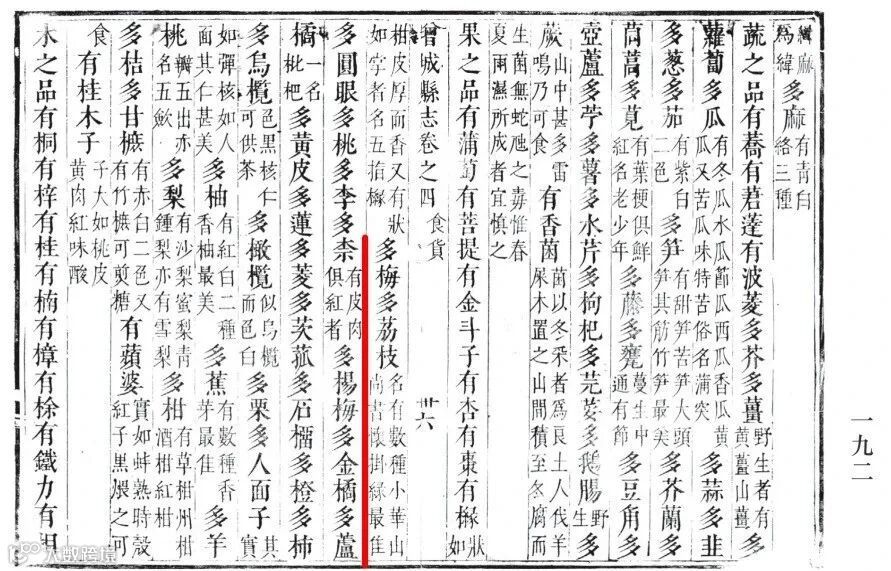 麻爲緯多麻有青白絡三種
蔬之品有蕎有莙薘有波菱多芥多薑野生者有黃薑山薑多
蘿蔔多瓜有冬瓜水瓜節瓜西瓜香瓜黃瓜又苦瓜味特苦俗名蒲突多蒜多韭
多葱多茄有紫白二色多笋有甜笋苦笋大頭笋其筋竹笋最美多芥蘭多
茼蒿多莧有葉梗俱鮮紅名老少年多藤多蕹蔓生中通有節多豆角多
壺蘆多苧多薯多水芹多枸杞多芫荽多鵝腸野生多
蕨山中甚多雷鳴乃可食有香菌菌以冬采者爲良土人伐羊屎木置之山間積至冬腐而
生菌無蛇虺之毒惟春夏雨濕所成者宜慎之
果之品有蒲萄有菩提有金斗子有杏有棗有櫞狀如
增城縣志卷之四 食貨 廿六
柑皮厚面香又有狀如字者名五指櫞多梅多荔枝名有數種小華山尚書懷掛綠最佳
多圓眼多桃多李多柰有皮肉俱紅者多楊梅多金橘多蘆
橘一名枇杷多黃皮多蓮多菱多茨菰多石榴多橙多柿
多烏欖色黑核仁可供茶多橄欖似烏欖而色白多栗多人面子其實
如彈核如人面其仁甚美多柚有紅白二種香柚最美多蕉有數種香芽最佳多羊
桃瓣五出亦名五歛多梨有沙梨蜜梨青鍾梨亦有雪梨多柑有草柑州柑酒柑紅柑
多桔多甘樜有赤白二色又有竹樜可煎糖有蘋婆實如蚌熟時殼紅子黑煨之可
食有桂木子子大如桃皮黃肉紅味酸
木之品有桐有梓有桂有楠有樟有有鐵力有
一九二
大数跨境